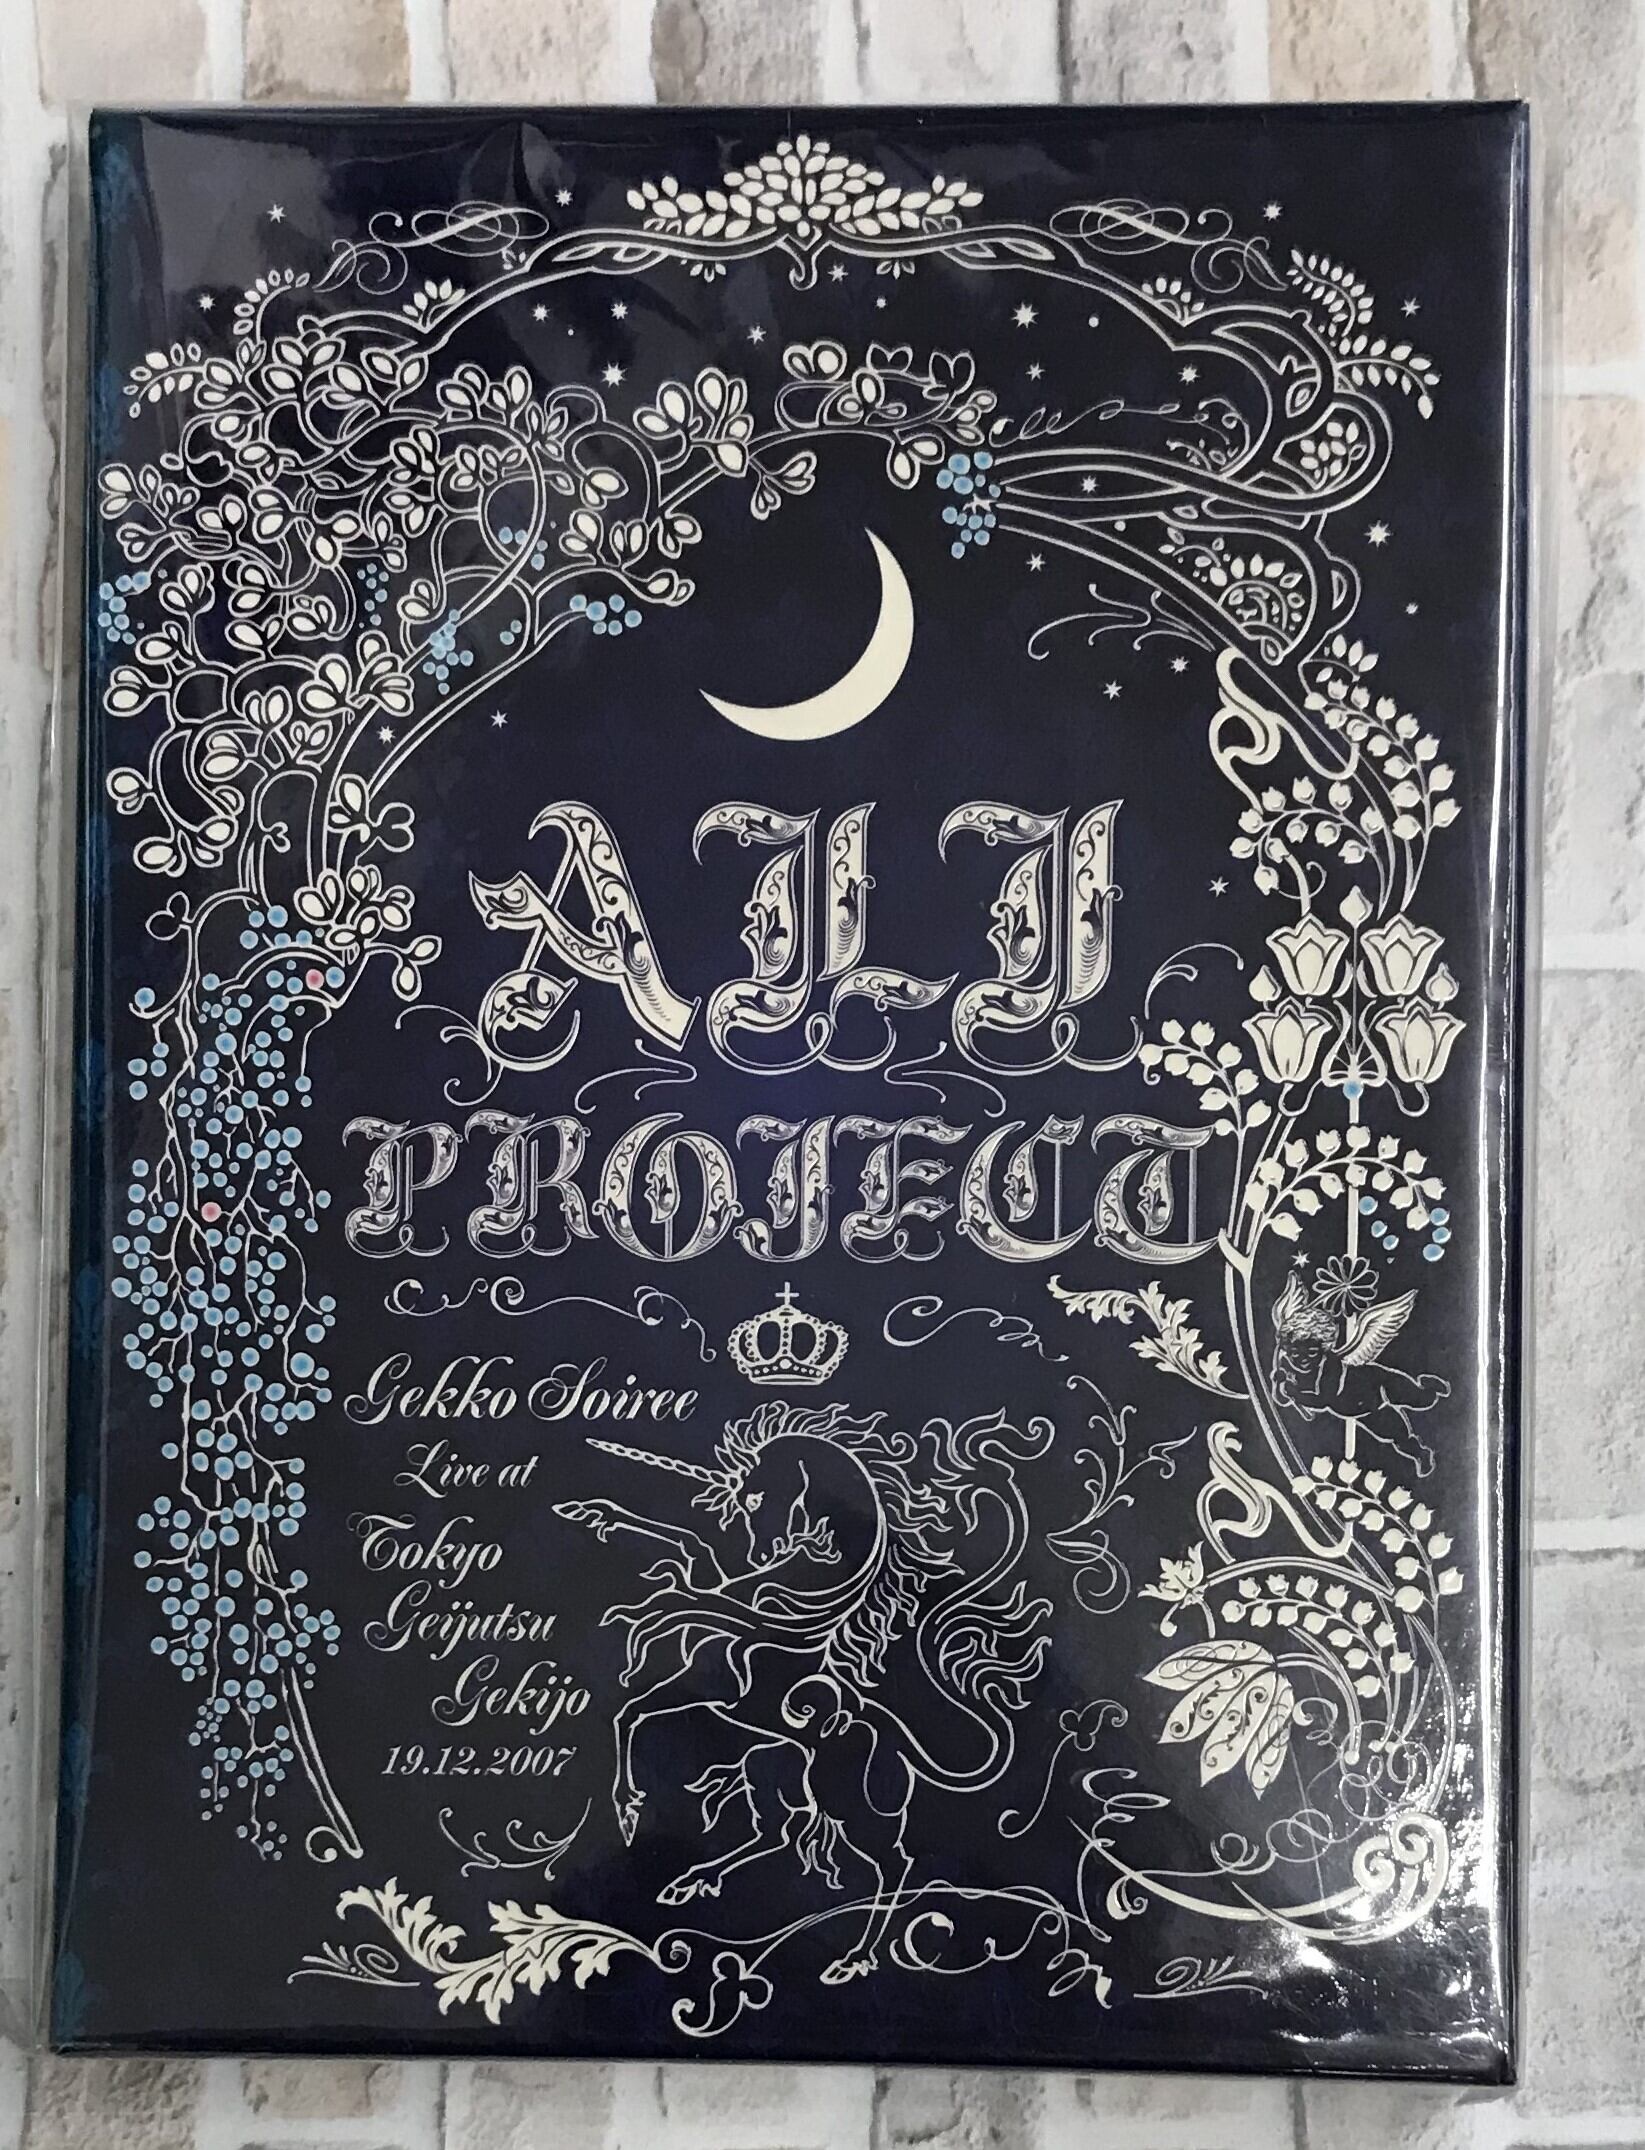 ALI
PROJECT
Gekko Soiree
Live at
Tokyo
Geijutsu
Gekijo
19.12.2007